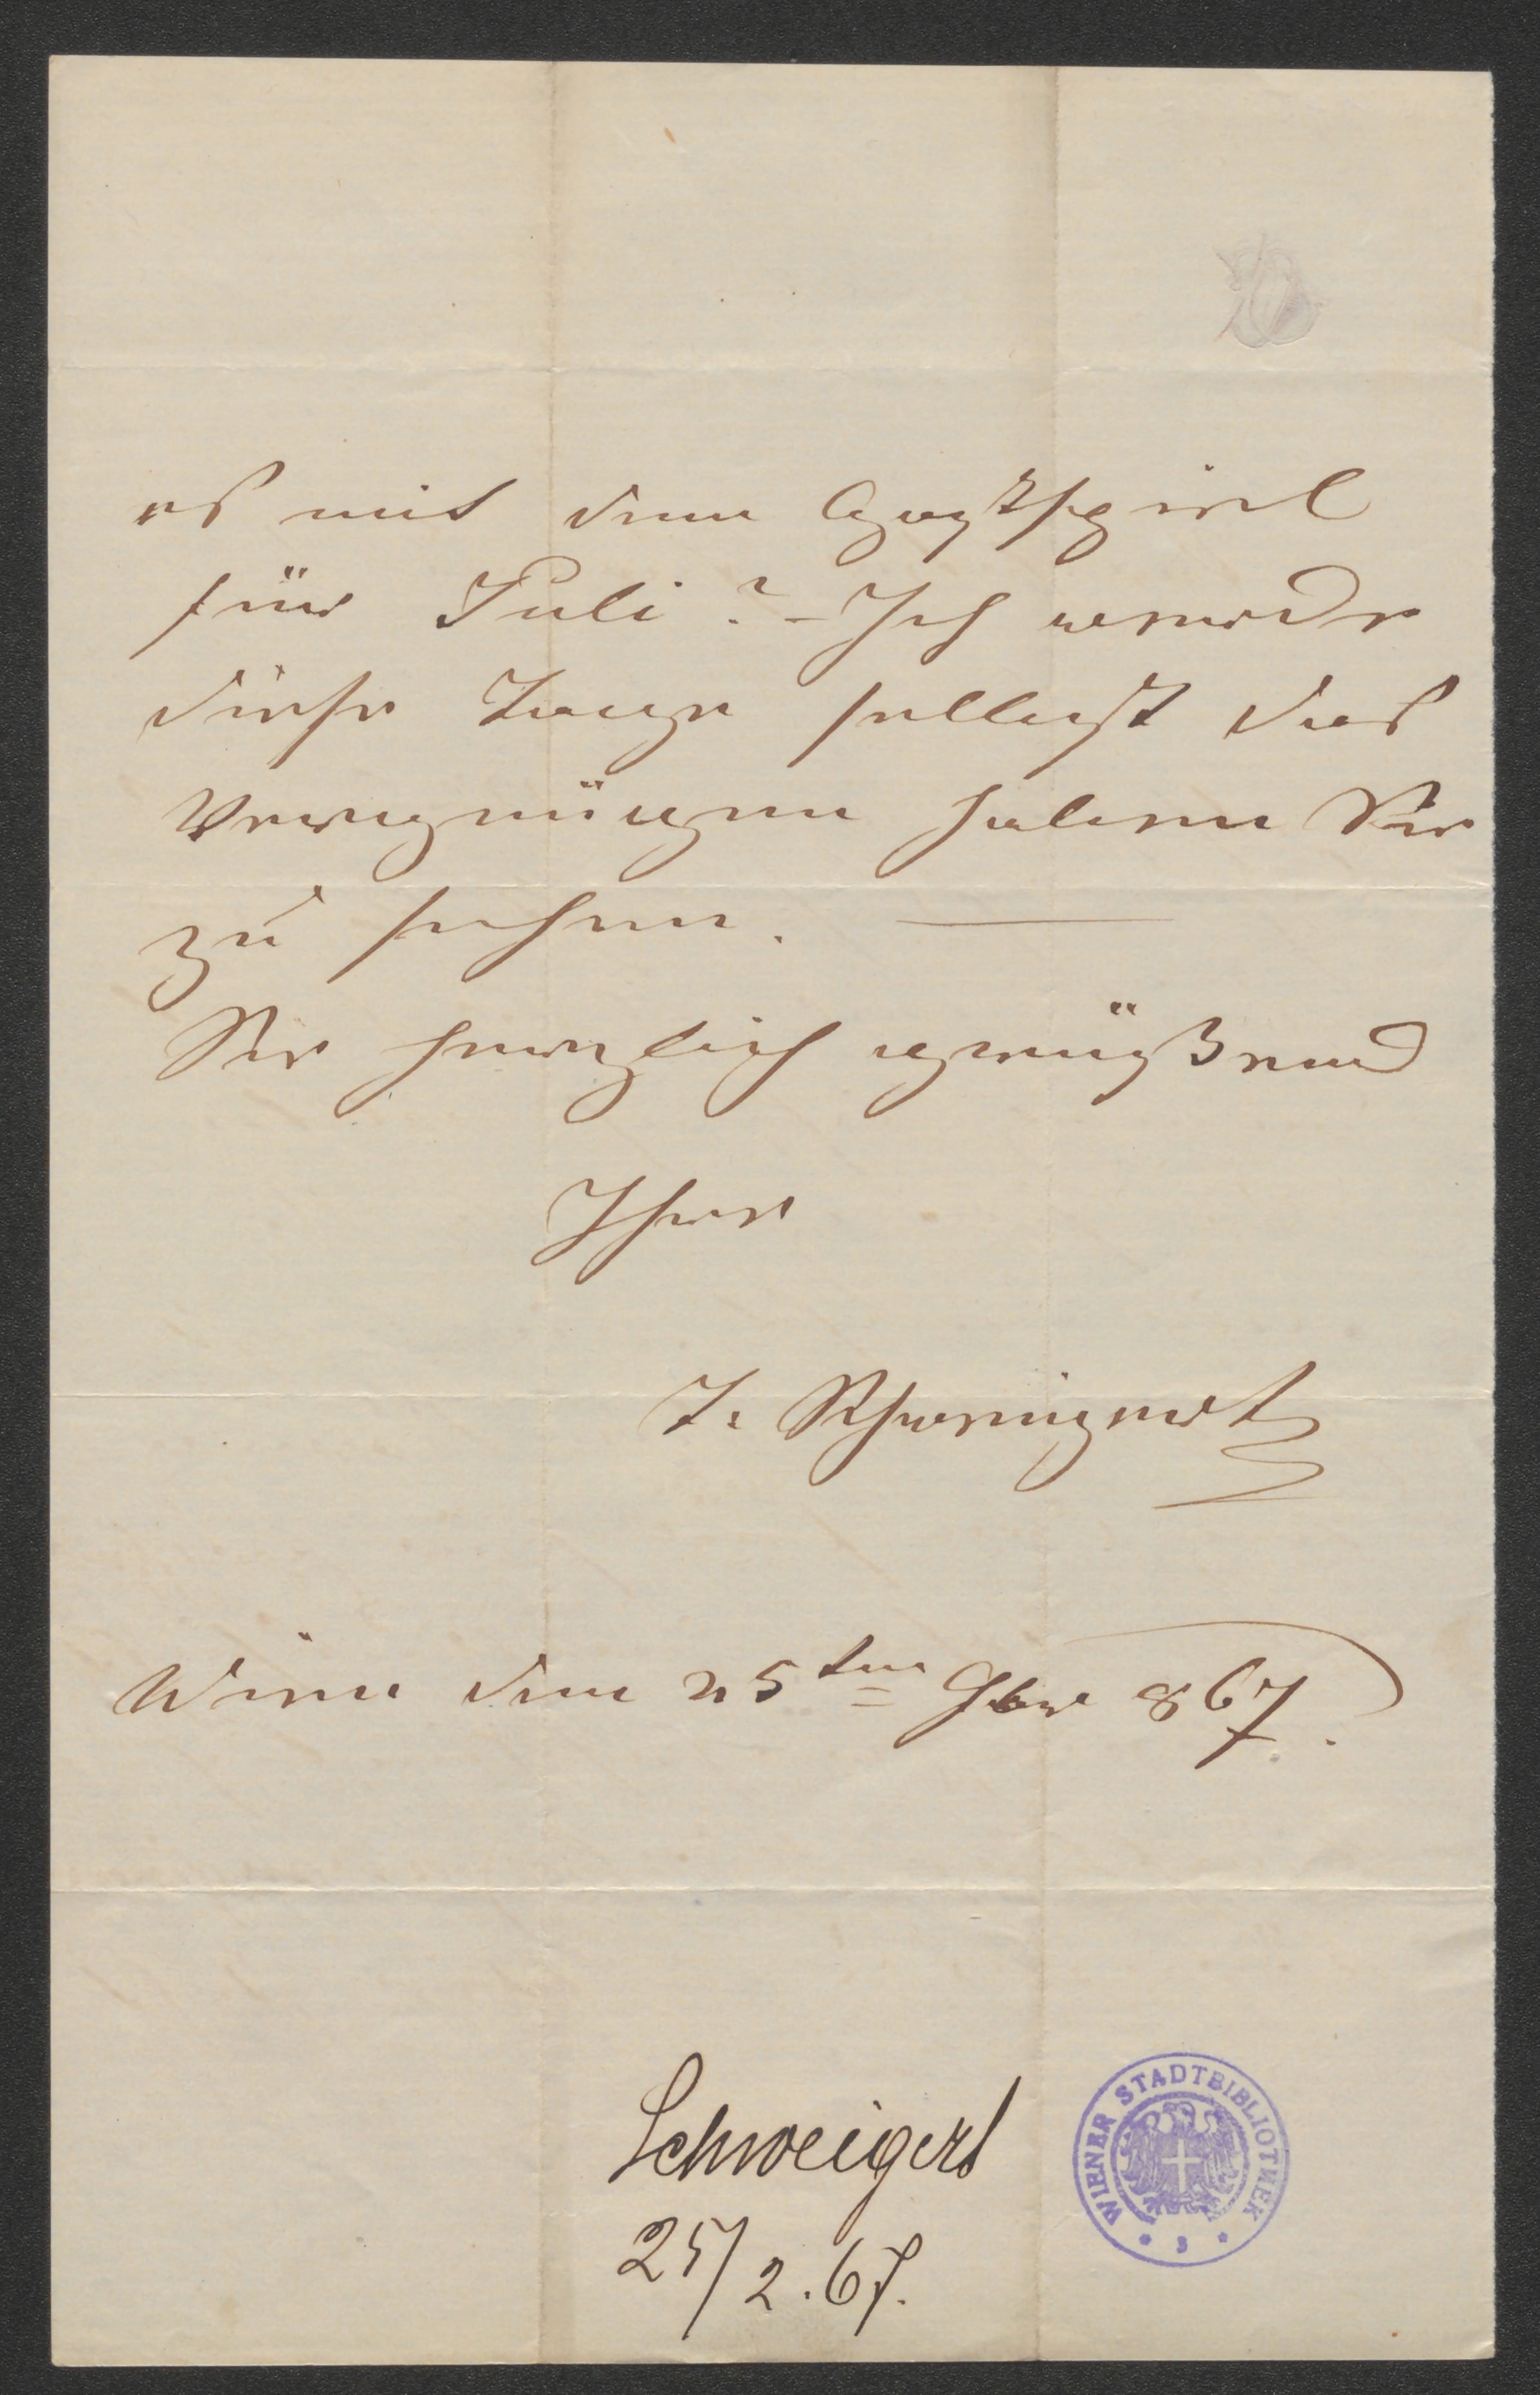 es mit dem Gastspiel
für Juli? – Ich werde
diese Tage selbst das
Vergnügen haben Sie
zu sehen. —
Sie herzlich grüßend
Ihre
J. Schweigert
Wien den 25ten Feber 867.
Schweigert
25/2.67.
WIENER STADTBIBLIOTHEK